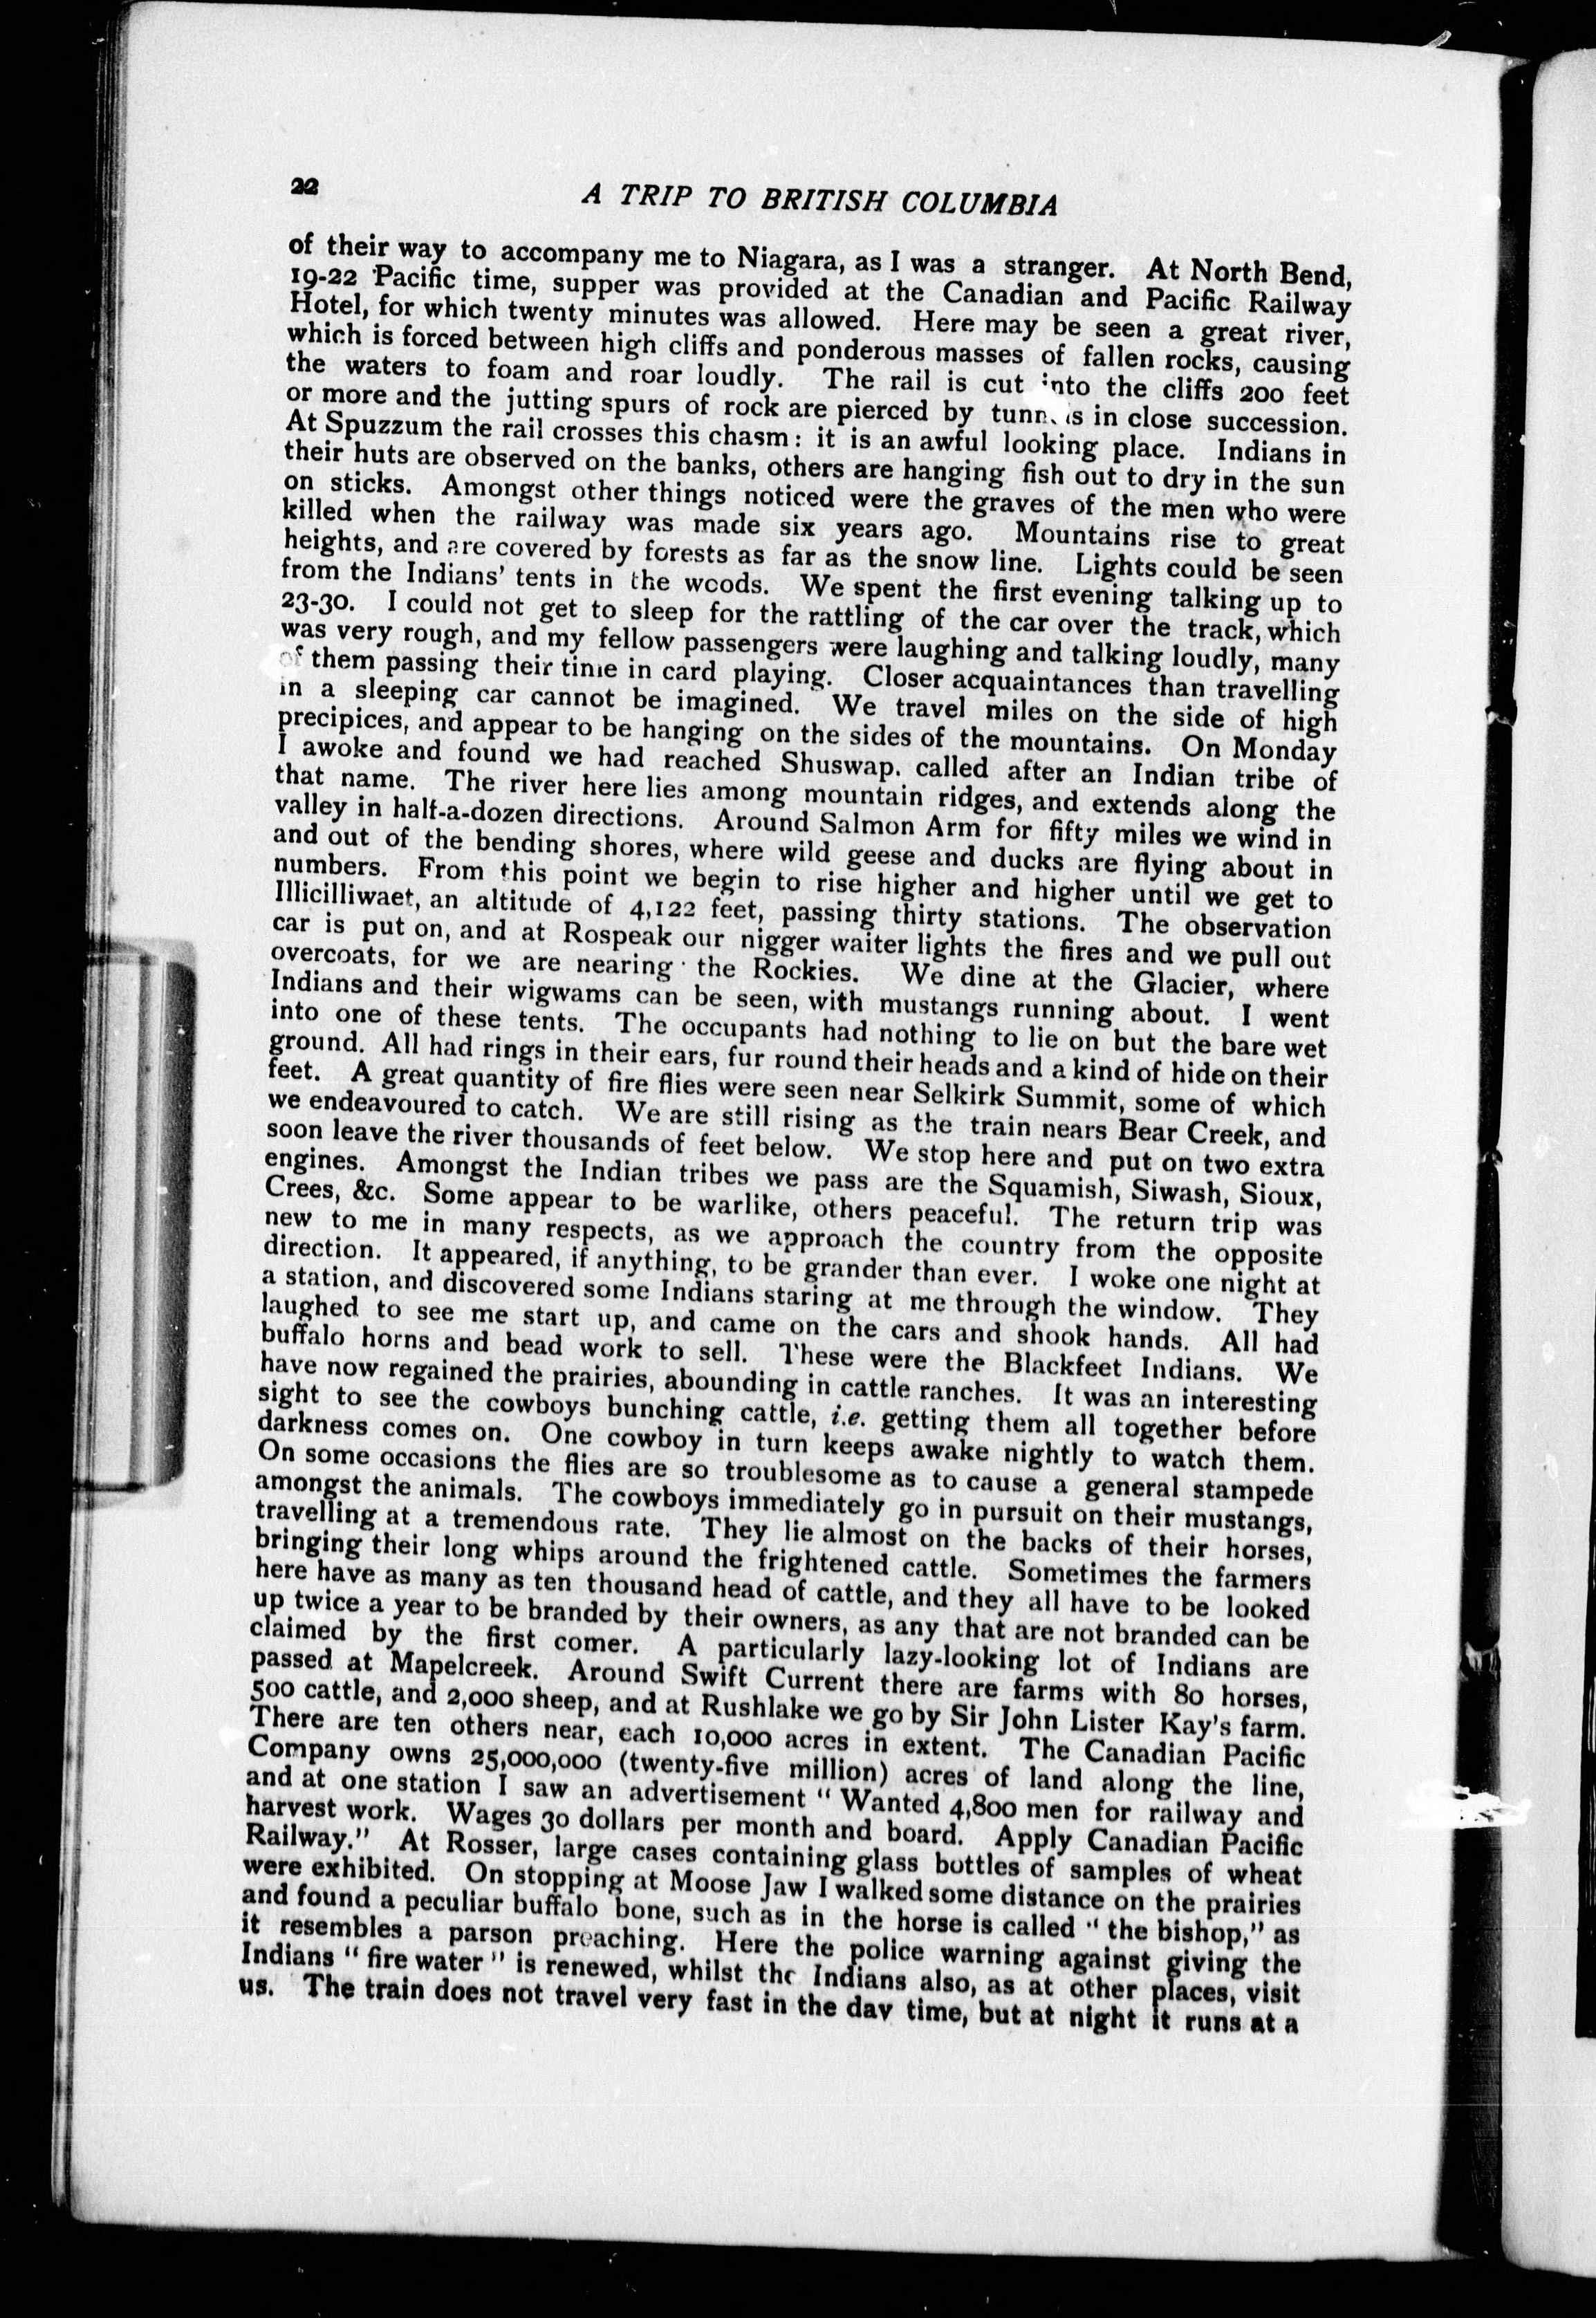 22
A TRIP TO BRITISH COLUMBIA
of their way to accompany me to Niagara, as I was a stranger. At North Bend,
19-22 Pacific time, supper was provided at the Canadian and Pacific Railway
Hotel, for which twenty minutes was allowed. Here may be seen a great river,
which is forced between high cliffs and ponderous masses of fallen rocks, causing
the waters to foam and roar loudly. The rail is cut into the cliffs 200 feet
or more and the jutting spurs of rock are pierced by tunnels in close succession.
At Spuzzum the rail crosses this chasm: it is an awful looking place. Indians in
their huts are observed on the banks, others are hanging fish out to dry in the sun
on sticks. Amongst other things noticed were the graves of the men who were
killed when the railway was made six years ago. Mountains rise to great
heights, and are covered by forests as far as the snow line. Lights could be seen
from the Indians' tents in the woods. We spent the first evening talking up to
23-30. I could not get to sleep for the rattling of the car over the track, which
was very rough, and my fellow passengers were laughing and talking loudly, many
of them passing their time in card playing. Closer acquaintances than travelling
in a sleeping car cannot be imagined. We travel miles on the side of high
precipices, and appear to be hanging on the sides of the mountains. On Monday
I awoke and found we had reached Shuswap. called after an Indian tribe of
that name. The river here lies among mountain ridges, and extends along the
valley in half-a-dozen directions. Around Salmon Arm for fifty miles we wind in
and out of the bending shores, where wild geese and ducks are flying about in
numbers. From this point we begin to rise higher and higher until we get to
Illicilliwaet, an altitude of 4,122 feet, passing thirty stations. The observation
car is put on, and at Rospeak our nigger waiter lights the fires and we pull out
overcoats, for we are nearing the Rockies. We dine at the Glacier, where
Indians and their wigwams can be seen, with mustangs running about. I went
into one of these tents. The occupants had nothing to lie on but the bare wet
ground. All had rings in their ears, fur round their heads and a kind of hide on their
feet. A great quantity of fire flies were seen near Selkirk Summit, some of which
we endeavoured to catch. We are still rising as the train nears Bear Creek, and
soon leave the river thousands of feet below. We stop here and put on two extra
engines. Amongst the Indian tribes we pass are the Squamish, Siwash, Sioux,
Crees, &c. Some appear to be warlike, others peaceful. The return trip was
new to me in many respects, as we approach the country from the opposite
direction. It appeared, if anything, to be grander than ever. I woke one night at
a station, and discovered some Indians staring at me through the window. They
laughed to see me start up, and came on the cars and shook hands. All had
buffalo horns and bead work to sell. These were the Blackfeet Indians. We
have now regained the prairies, abounding in cattle ranches. It was an interesting
sight to see the cowboys bunching cattle, i.e. getting them all together before
darkness comes on. One cowboy in turn keeps awake nightly to watch them.
On some occasions the flies are so troublesome as to cause a general stampede
amongst the animals. The cowboys immediately go in pursuit on their mustangs,
travelling at a tremendous rate. They lie almost on the backs of their horses,
bringing their long whips around the frightened cattle. Sometimes the farmers
here have as many as ten thousand head of cattle, and they all have to be looked
up twice a year to be branded by their owners, as any that are not branded can be
claimed by the first comer. A particularly lazy-looking lot of Indians are
passed at Mapelcreek. Around Swift Current there are farms with 80 horses,
500 cattle, and 2,000 sheep, and at Rushlake we go by Sir John Lister Kay's farm.
There are ten others near, each 10,000 acres in extent. The Canadian Pacific
Company owns 25,000,000 (twenty-five million) acres of land along the line,
and at one station I saw an advertisement "Wanted 4,800 men for railway and
harvest work. Wages 30 dollars per month and board. Apply Canadian Pacific
Railway." At Rosser, large cases containing glass bottles of samples of wheat
were exhibited. On stopping at Moose Jaw I walked some distance on the prairies
and found a peculiar buffalo bone, such as in the horse is called "the bishop," as
it resembles a parson preaching. Here the police warning against giving the
Indians "fire water" is renewed, whilst the Indians also, as at other places, visit
us. The train does not travel very fast in the day time, but at night it runs at a